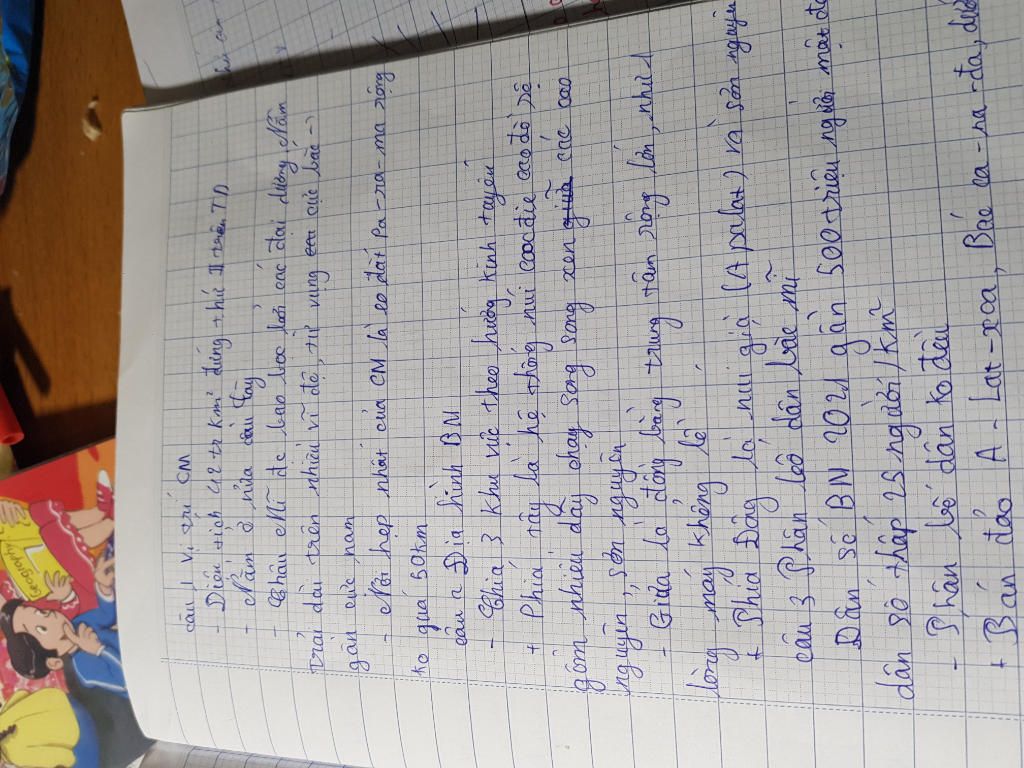 câu 1 Vị trí CM
- Diện tích 42 tr km² đứng thứ II trên TD
- Nằm ở nửa cầu Tây
- Châu Mĩ đc bao bọc bởi các đại dương Nằm
trải dài trên nhiều vĩ độ, từ vùng cực bắc →
gần cực nam
- Nơi hẹp nhất của CM là eo đất Pa-na-ma rộng
ko quá 50km
câu 2 Địa hình BM
- Chia 3 khu vực theo hướng kinh tuyến
+ Phía tây là hệ thống núi cooc đie cao đồ sộ
gồm nhiều dãy chạy song song xen giữa các cao
nguyên, sơn nguyên
- Giữa là đồng bằng trung tâm rộng lớn, như 1
lòng máng khổng lồ
+ Phía Đông là núi già (A palat) và sơn nguyên
câu 3 Phân bố dân bắc mĩ
Dân số BM 2021 gần 500 triệu người mật độ
dân số thấp 25 người/km²
- Phân bố dân ko đều
+ Bán đảo A-lat-xca, Bắc ca-na-đa, dưới
Geography